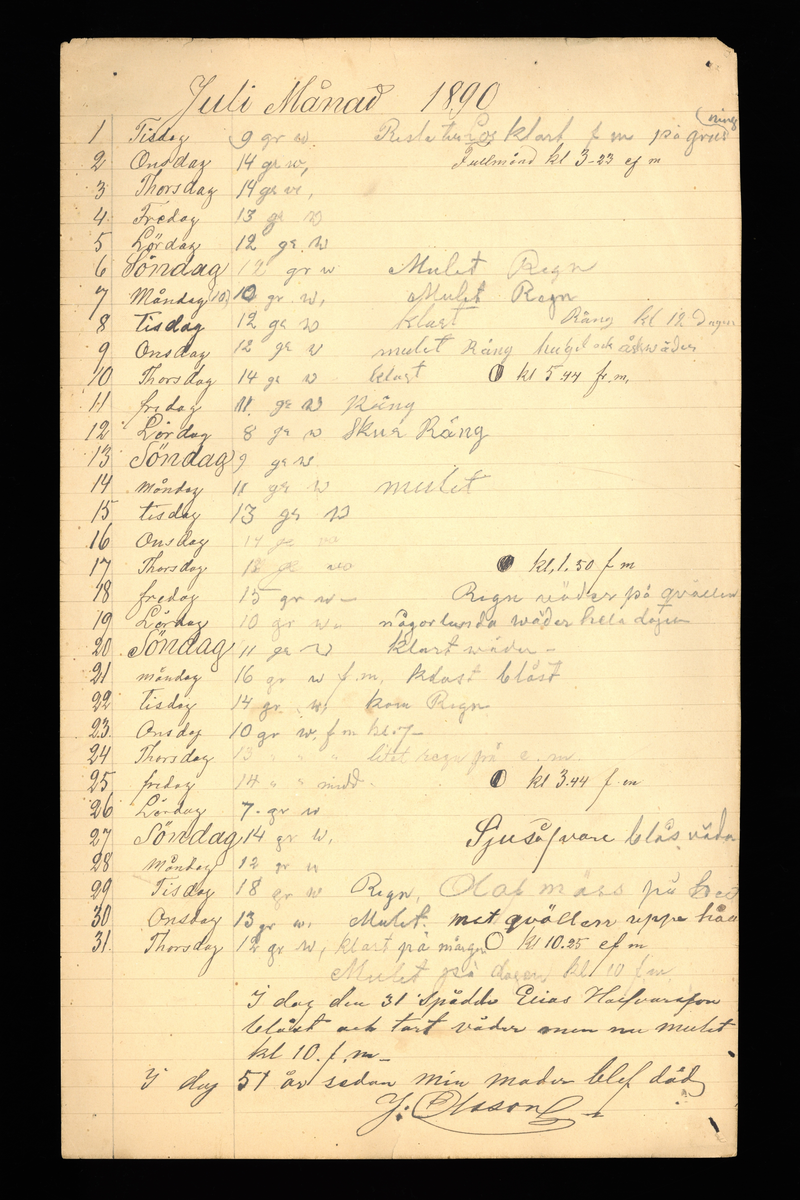 Juli Månad 1890
1 Tisdag 9 gr w klart f m på grus
ning
2 Onsdag 14 gr w, Fullmånd kl 3-23 ef m
3 Thorsdag 14 gr w,
4 Fredag 13 gr w
5 Lördag 12 gr w
6 Söndag 12 gr w Mulet Regn
7 Måndag (10) 10 gr w, Mulet Regn
8 tisdag 12 gr w klart Räng kl 12 Dagen
9 Onsdag 12 gr w mulet Räng hagel och åskwäder
10 Thorsdag 14 gr w klart kl 5.44 fr.m,
11 fredag 11 gr w Räng
12 Lördag 8 gr w Skur Räng
13 Söndag 9 gr w
14 Måndag 11 gr w mulet
15 tisdag 13 gr w
16 Onsdag 14 gr w
17 Thorsdag 12 gr w kl, 1.50 f m
18 fredag 15 gr w - Regn wäder på qvällen
19 Lördag 10 gr w. någorlunda wäder hella dagen
20 Söndag 11 gr w klart wäder -
21 måndag 16 gr w f.m, klart blåst
22 tisdag 14 gr w, kom Regn
23 Onsdag 10 gr w, f m kl. 7-
24 Thorsdag 13 " " " litet regn på e.m.
25 fredag 14 " " midd. kl 3.44 f m
26 Lördag 7. gr w
27 Söndag 14 gr w, Sjusofvare blås väder
28 Måndag 12 gr w
29 Tisdag 18 gr w Regn, Olof mäss på
30 Onsdag 13 gr w, Mulet. mot qvällen uppe håll
31 Thorsdag 12 gr w, klart på mårgn kl 10.25 ef m
Mulet på dagen kl 10 f m
I dag den 31 spådde Elias Halfvarsson
blåst och tort väder men nu mulet
kl 10. f. m -
I dag 51 år sedan min moder blef död
J. Olsson